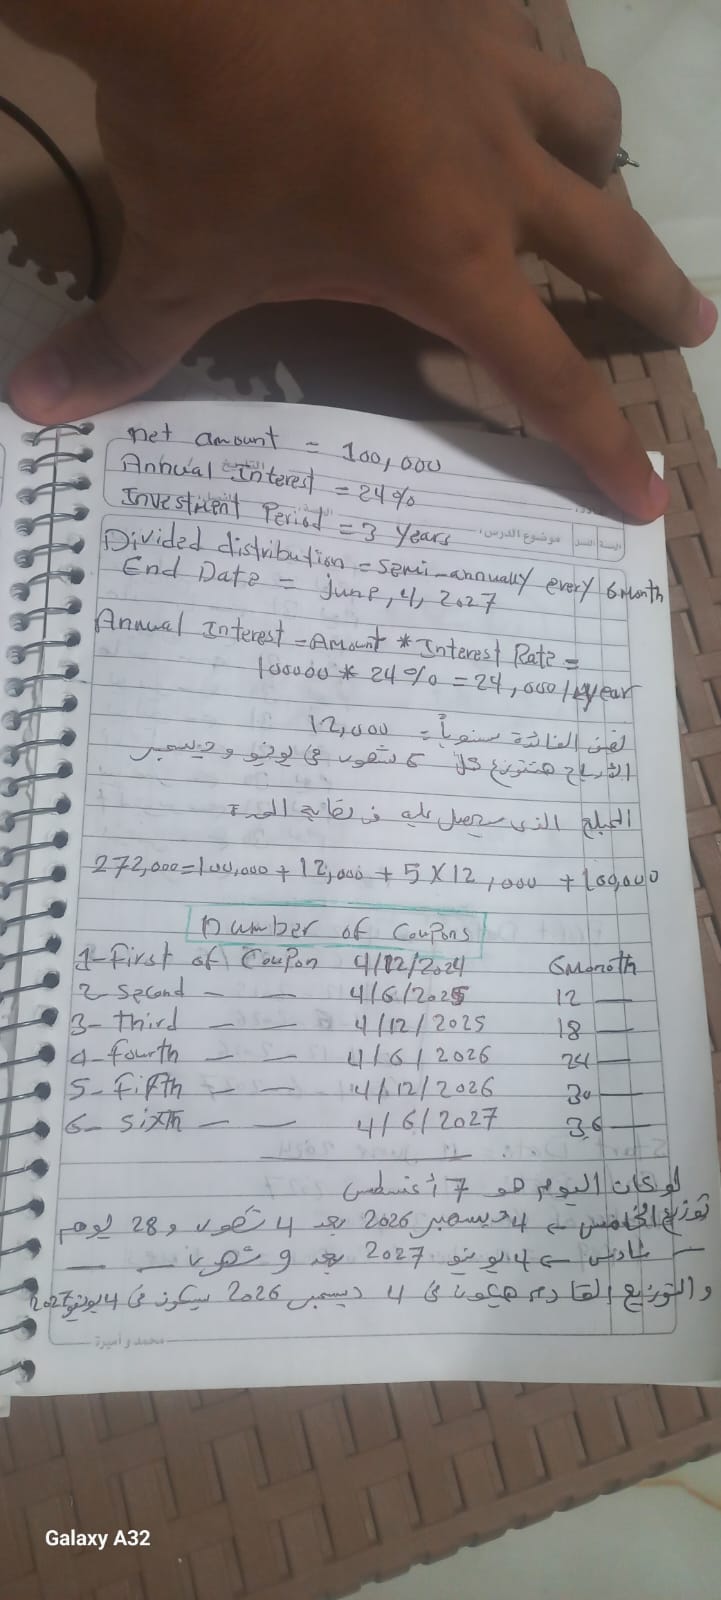 net amount = 100,000
Annual Interest = 24%
Investment Period = 3 years
موضوع الدرس:
Divided distribution = semi-annually every 6 Month
End Date = june, 4, 2027
Annual Interest = Amount * Interest Rate =
100000 * 24% = 24,000 / year
الفائدة سنوياً = 12,000
الأرباح هتتوزع كل 6 شهور في يونيو و ديسمبر
المبلغ الذي سيحصل عليه في نهاية المدة
272,000 = 100,000 + 12,000 + 5 X 12,000 + 100,000
Number of Coupons
1- First of Coupon 4/12/2024 6 Month
2- Second — — 4/6/2025 12 —
3- third — — 4/12/2025 18 —
4- fourth — — 4/6/2026 24 —
5- fifth — — 4/12/2026 30 —
6- sixth — — 4/6/2027 36 —
لو كان اليوم هو 7 أغسطس
توزيع الخامس ← 4 ديسمبر 2026 بعد 4 شهور و 28 يوم
— سادس ← 4 يونيو 2027 بعد 9 شهور — —
و التوزيع القادم هيكون في 4 ديسمبر 2026 سيكون في 4 يونيو 2027
محمد و أميرة
Galaxy A32